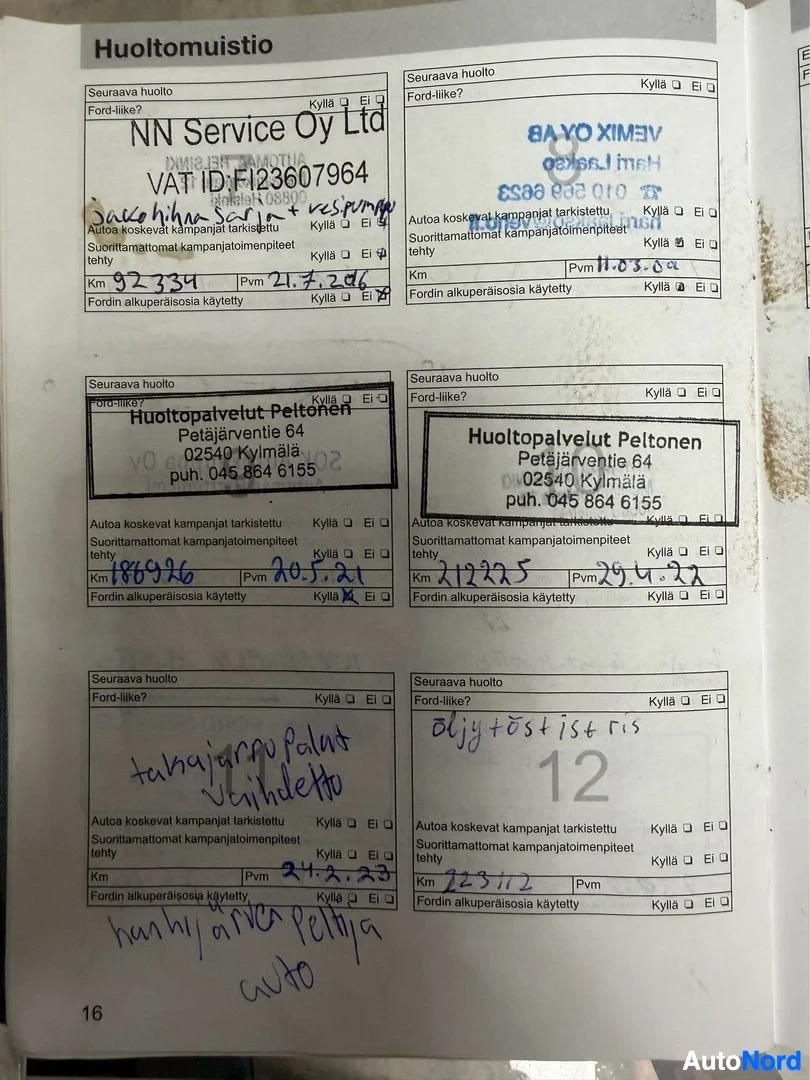 Huoltomuistio
Seuraava huolto
Ford-liike? Kyllä ❑ Ei ❑
NN Service Oy Ltd
VAT ID:FI23607964
Jakohihna sarja + vesipumppu
Autoa koskevat kampanjat tarkistettu Kyllä ❑ Ei
Suorittamattomat kampanjatoimenpiteet
tehty Kyllä ❑ Ei
Km 92334 Pvm 21.7.2016
Fordin alkuperäisosia käytetty Kyllä ❑ Ei ☒
Seuraava huolto
Ford-liike? Kyllä ❑ Ei ❑
8
VEMIX OY AB
Harri Laakso
☎ 010 569 6623
Autoa koskevat kampanjat tarkistettu Kyllä ❑ Ei ❑
Suorittamattomat kampanjatoimenpiteet
tehty Kyllä ☒ Ei ❑
Km Pvm 11.03.09
Fordin alkuperäisosia käytetty Kyllä ☒ Ei ❑
Seuraava huolto
Ford-liike? Kyllä ❑ Ei ❑
Huoltopalvelut Peltonen
Petäjärventie 64
02540 Kylmälä
puh. 045 864 6155
Autoa koskevat kampanjat tarkistettu Kyllä ❑ Ei ❑
Suorittamattomat kampanjatoimenpiteet
tehty Kyllä ❑ Ei ❑
Km 186926 Pvm 20.5.21
Fordin alkuperäisosia käytetty Kyllä ☒ Ei ❑
Seuraava huolto
Ford-liike? Kyllä ❑ Ei ❑
Huoltopalvelut Peltonen
Petäjärventie 64
02540 Kylmälä
puh. 045 864 6155
Autoa koskevat kampanjat tarkistettu Kyllä ❑ Ei ❑
Suorittamattomat kampanjatoimenpiteet
tehty Kyllä ❑ Ei ❑
Km 212225 Pvm 29.4.22
Fordin alkuperäisosia käytetty Kyllä ❑ Ei ❑
Seuraava huolto
Ford-liike? Kyllä ❑ Ei ❑
11
takajarru palat
vaihdettu
Autoa koskevat kampanjat tarkistettu Kyllä ❑ Ei ❑
Suorittamattomat kampanjatoimenpiteet
tehty Kyllä ❑ Ei ❑
Km Pvm 24.2.23
Fordin alkuperäisosia käytetty Kyllä ❑ Ei ❑
auto
Seuraava huolto
Ford-liike? Kyllä ❑ Ei ❑
12
Autoa koskevat kampanjat tarkistettu Kyllä ❑ Ei ❑
Suorittamattomat kampanjatoimenpiteet
tehty Kyllä ❑ Ei ❑
Km 223112 Pvm
Fordin alkuperäisosia käytetty Kyllä ❑ Ei ❑
16
AutoNord